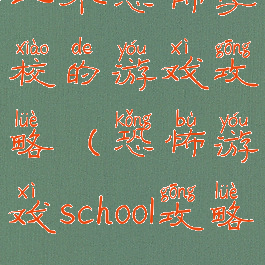 xiào de yóu xì gōng
校的游戏攻
lüè kǒng bù yóu
略(恐怖游
xì gōng lüè
戏school攻略